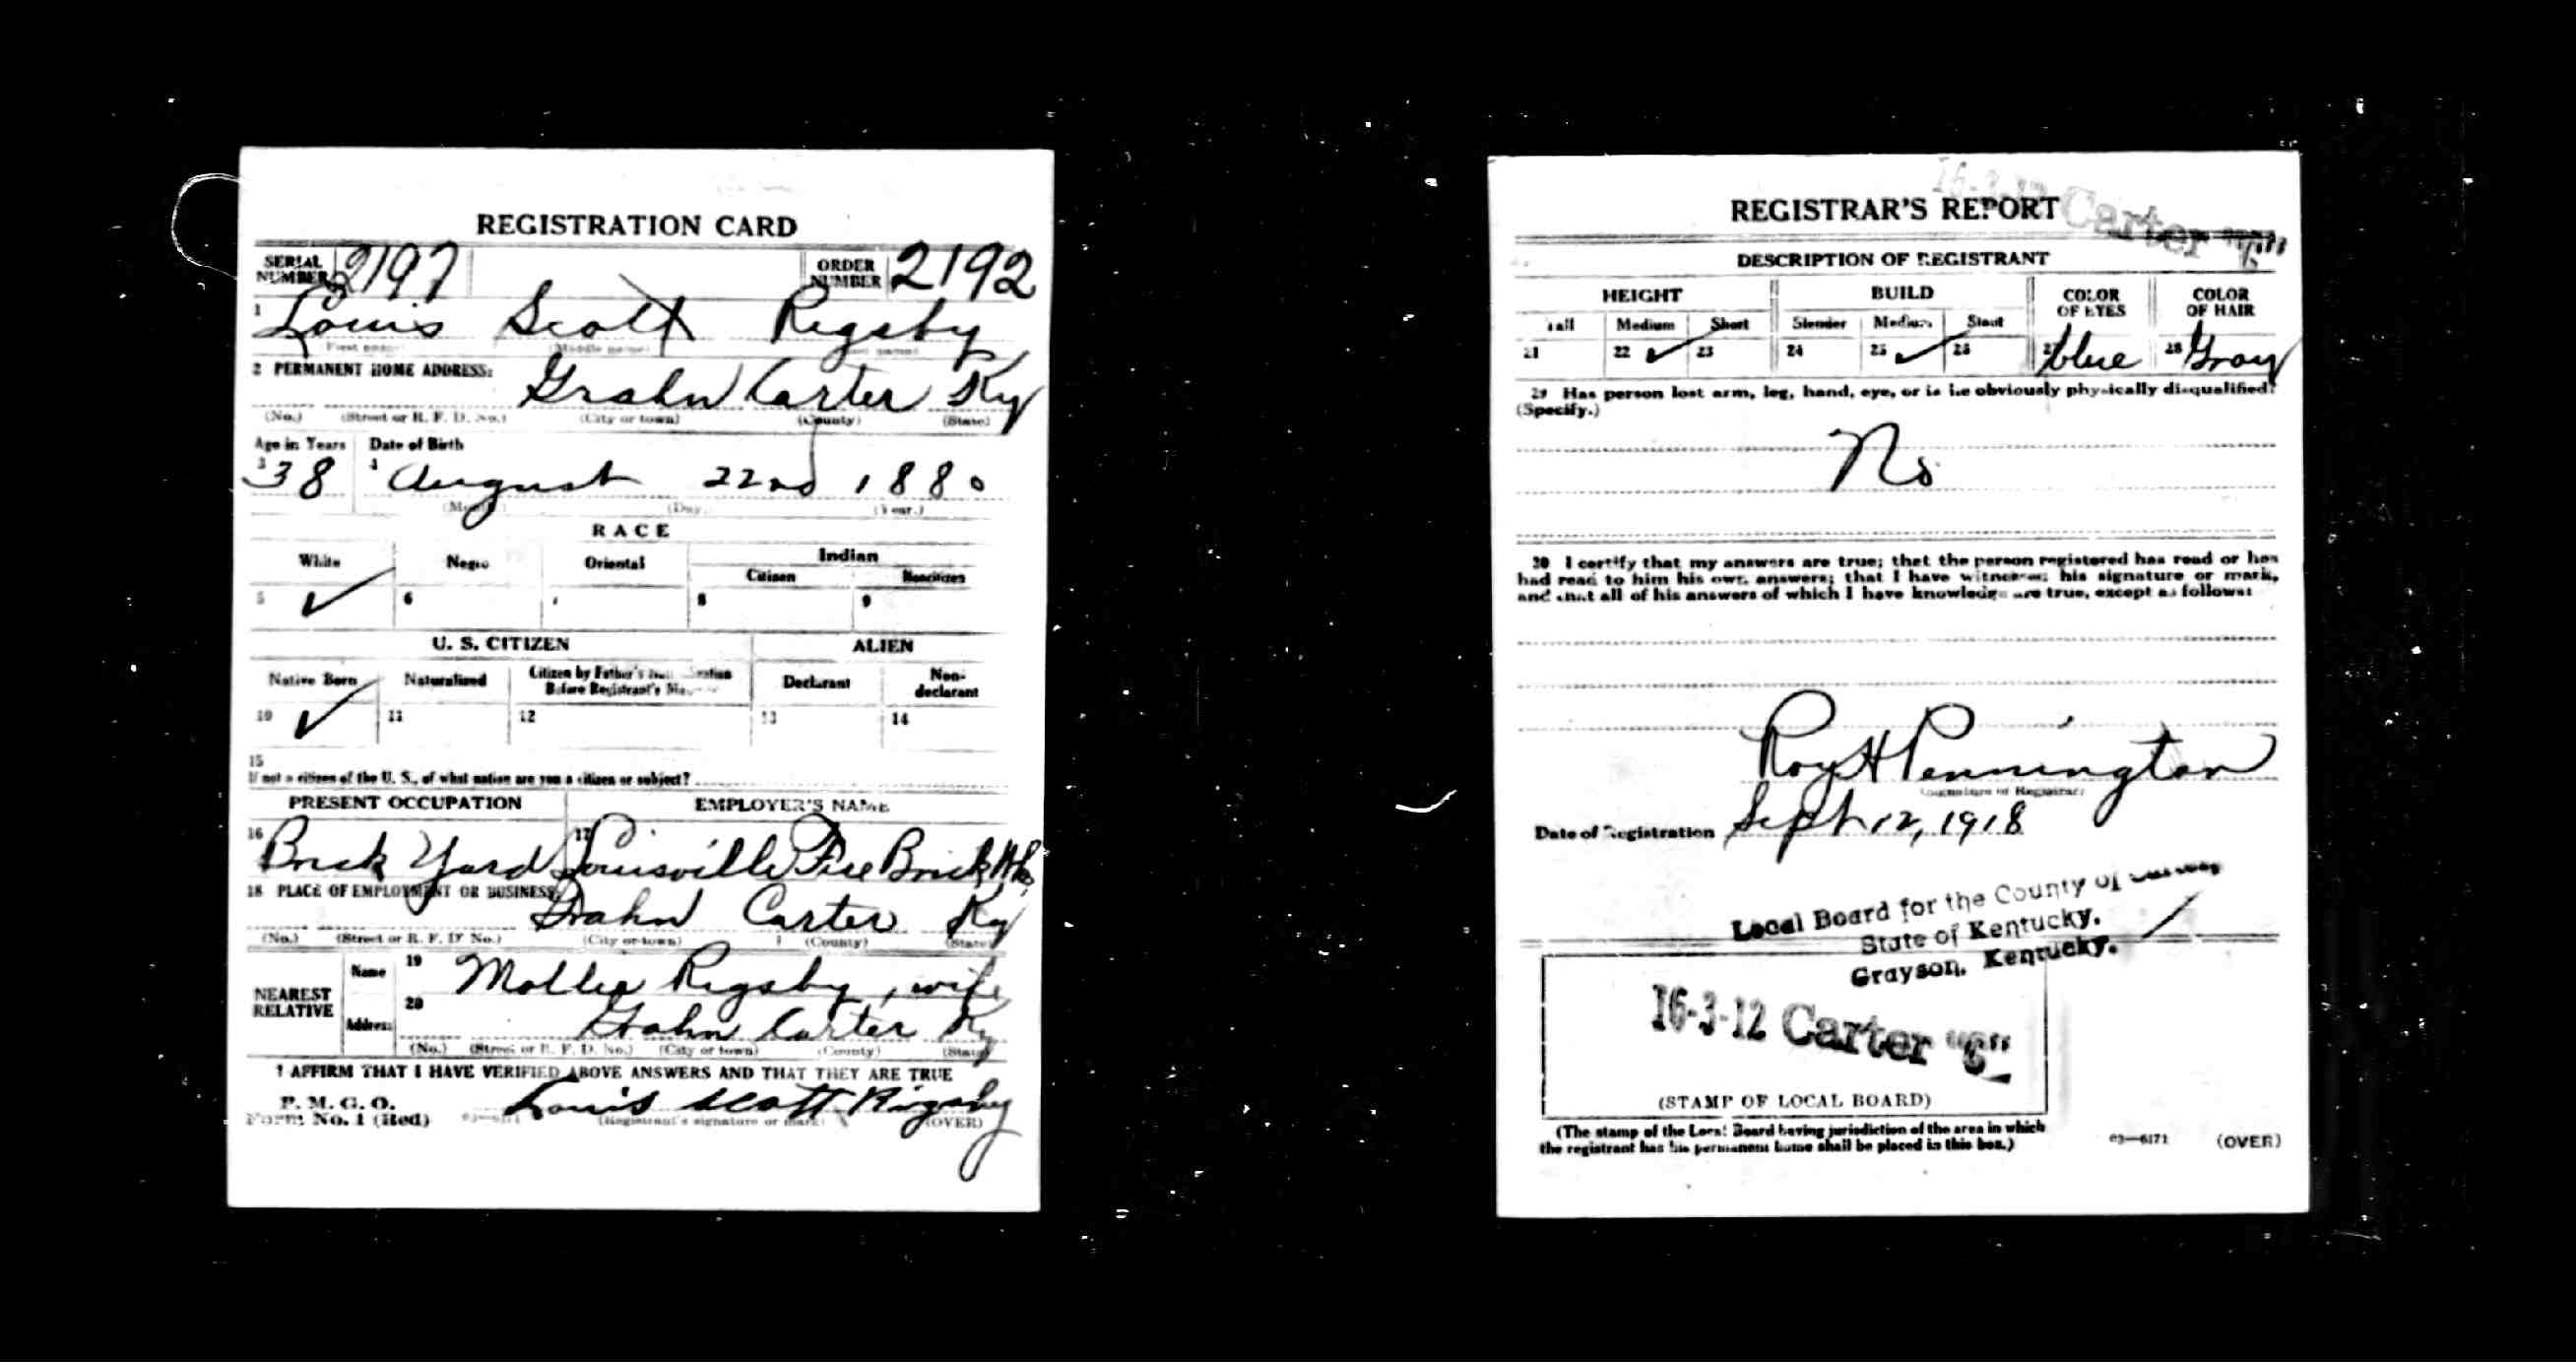 REGISTRATION CARD
SERIAL NUMBER 2197 ORDER NUMBER 2192
1 Louis Scott Rigsby
(First name) (Middle name) (Last name)
2 PERMANENT HOME ADDRESS:
Grahn Carter Ky
(No.) (Street or R. F. D. No.) (City or town) (County) (State)
Age in Years Date of Birth
3 38 4 August 22nd 1880
(Month.) (Day.) (Year.)
RACE
White Negro Oriental Indian
Citizen Noncitizen
5 ✓ 6 7 8 9
U. S. CITIZEN ALIEN
Native Born Naturalized Citizen by Father's Naturalization Before Registrant's Declarant Non-declarant
10 ✓ 11 12 13 14
15
If not a citizen of the U. S., of what nation are you a citizen or subject?
PRESENT OCCUPATION EMPLOYER'S NAME
16 Brick Yard 17 Louisville Fire Brick
18 PLACE OF EMPLOYMENT OR BUSINESS:
Grahn Carter Ky
(No.) (Street or R. F. D. No.) (City or town) (County) (State)
NEAREST RELATIVE Name 19 Mollie Rigsby, wife
Address 20 Grahn Carter Ky
(No.) (Street or R. F. D. No.) (City or town) (County) (State)
I AFFIRM THAT I HAVE VERIFIED ABOVE ANSWERS AND THAT THEY ARE TRUE
P. M. G. O.
Form No. 1 (Red) Louis Scott Rigsby
(Registrant's signature or mark) (OVER)
16-3-12 Carter "C"
REGISTRAR'S REPORT
DESCRIPTION OF REGISTRANT
HEIGHT BUILD COLOR OF EYES COLOR OF HAIR
Tall Medium Short Slender Medium Stout
21 22 ✓ 23 24 25 ✓ 26 27 blue 28 Gray
29 Has person lost arm, leg, hand, eye, or is he obviously physically disqualified?
(Specify.)
No
30 I certify that my answers are true; that the person registered has read or has
had read to him his own answers; that I have witnessed his signature or mark,
and that all of his answers of which I have knowledge are true, except as follows:
Roy H Pennington
(Signature of Registrar)
Date of Registration Sept 12, 1918
Local Board for the County of Carter
State of Kentucky.
Grayson, Kentucky.
16-3-12 Carter "C"
(STAMP OF LOCAL BOARD)
(The stamp of the Local Board having jurisdiction of the area in which
the registrant has his permanent home shall be placed in this box.)
03—6171 (OVER)